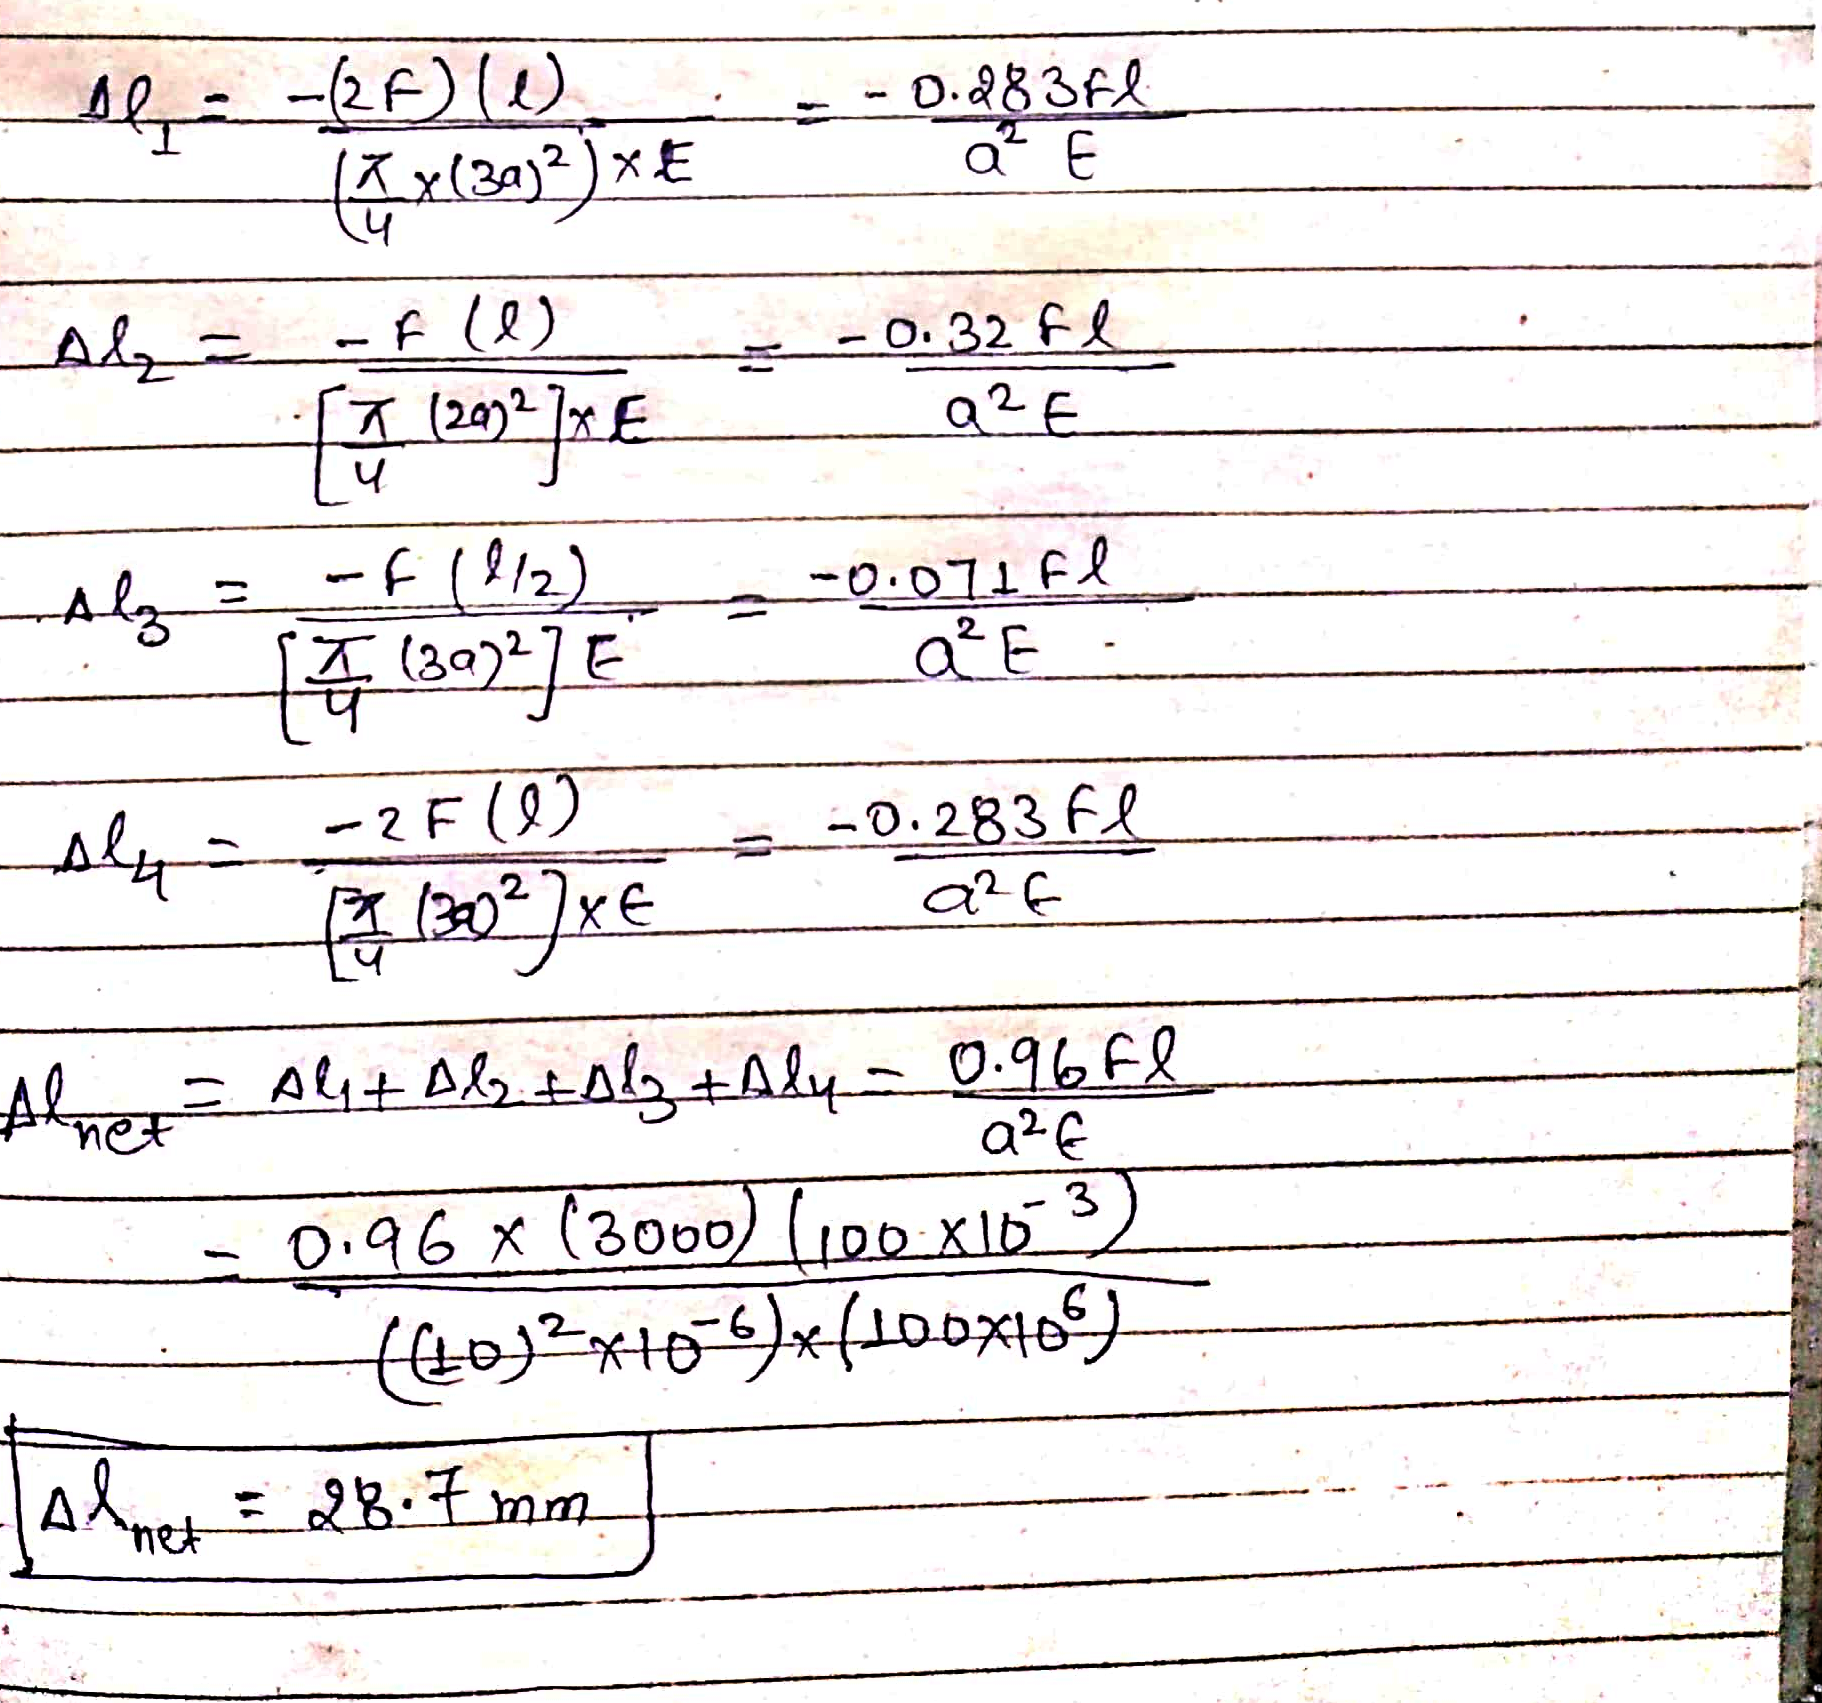 Δl₁ = -(2F)(l) / ((π/4 × (3a)²) × E) = -0.283Fl / a² E
Δl₂ = -F(l) / ([π/4 (2a)²] × E) = -0.32 Fl / a² E
Δl₃ = -F(l/2) / ([π/4 (3a)²] E) = -0.071 Fl / a² E
Δl₄ = -2F(l) / ([π/4 (3a)²] × E) = -0.283 Fl / a² E
Δl net = Δl₁ + Δl₂ + Δl₃ + Δl₄ = 0.96 Fl / a² E
= 0.96 × (3000) (100 × 10⁻³) / (((10)² × 10⁻⁶) × (100×10⁶))
Δl net = 28.7 mm